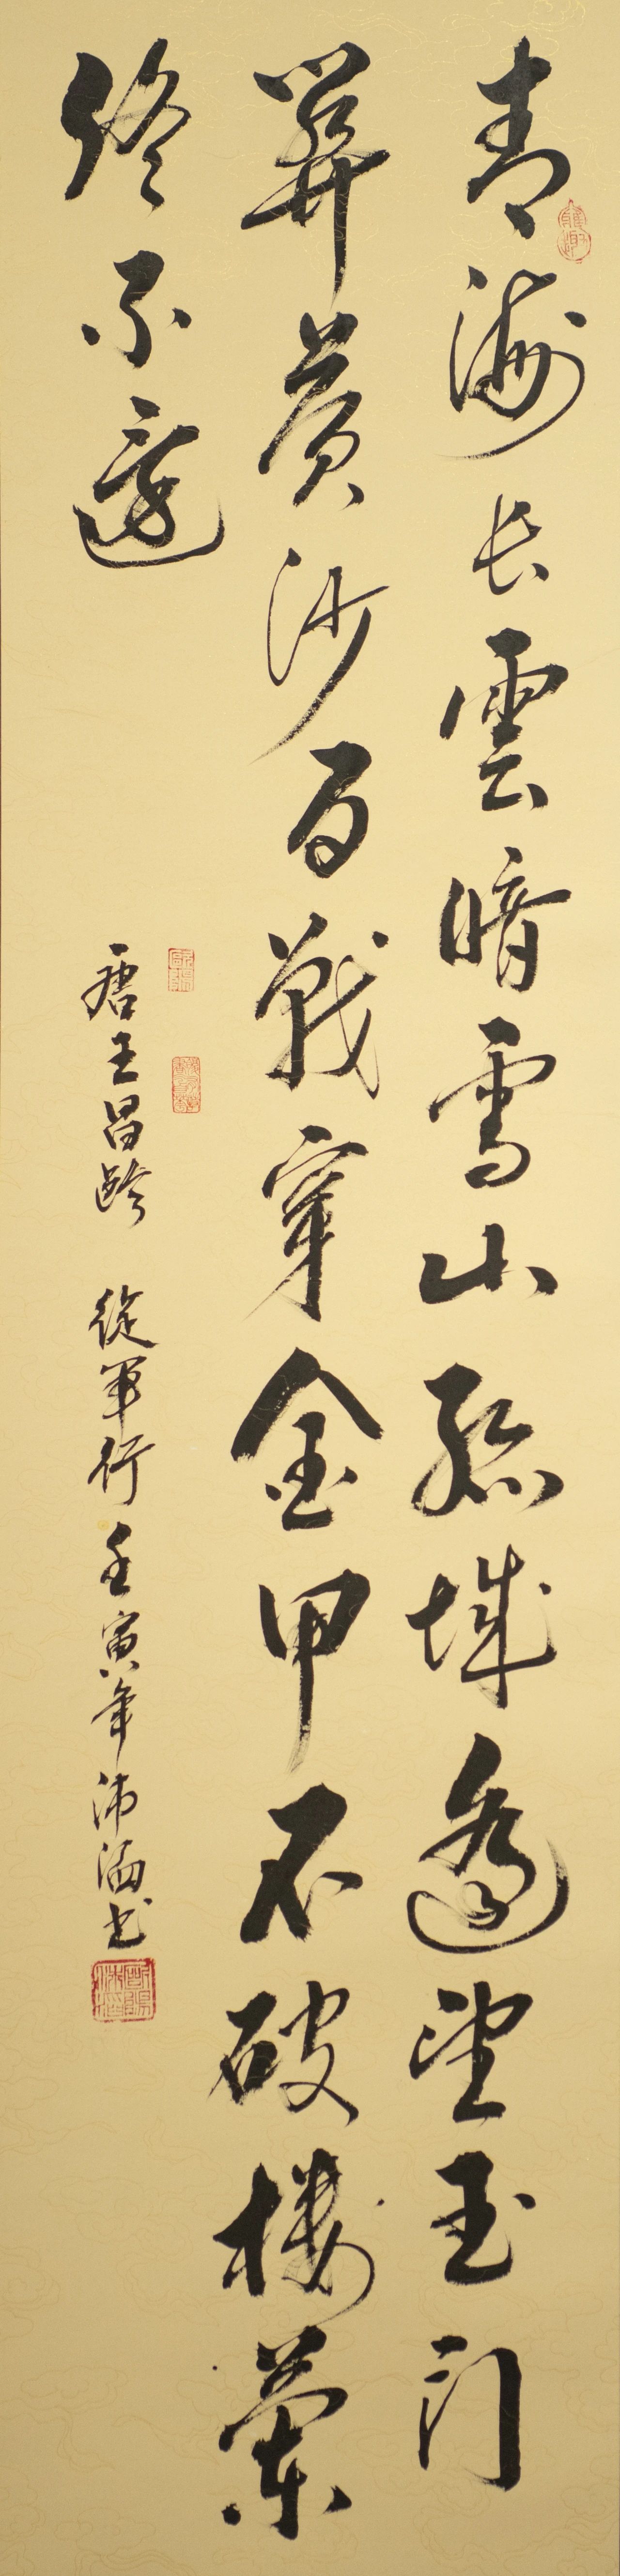 青海長雲暗雪山孤城遥望玉門
關黄沙百戰穿金甲不破樓蘭
終不還
唐王昌齡 從軍行 壬寅年沛滔书